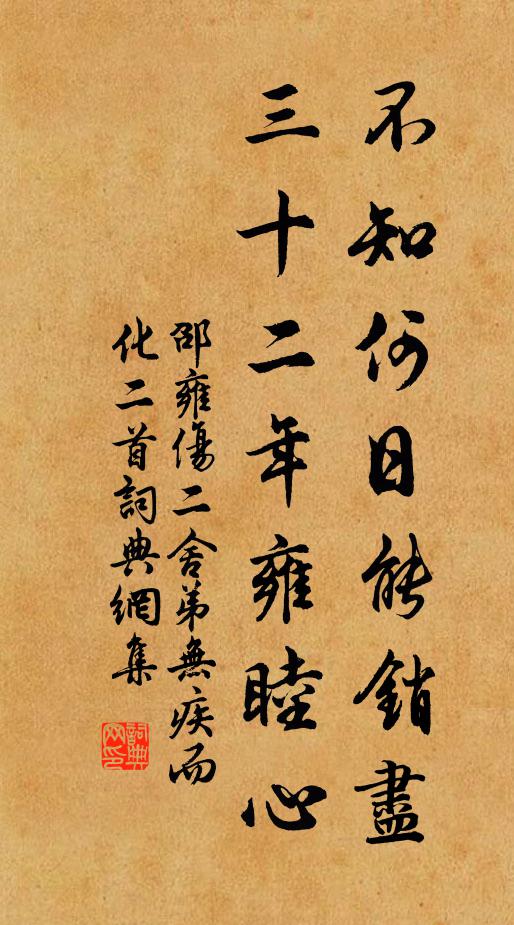 不知何日能銷盡
三十二年雍睦心
邵雍傷二舍弟無疾而
化二首詞典網集
詞典
網印